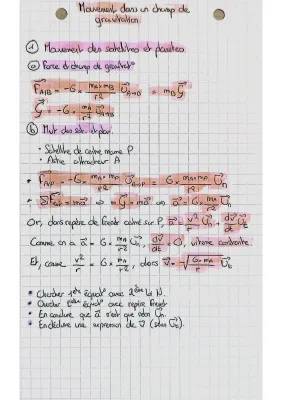 Mouvement dans un champ de
gravitation.
① Mouvement des satellites et planètes
ⓐ Force et champ de gravitat°
F⃗A/B = -G × mA×mB/r² U⃗A→B = mB G⃗
G⃗ = -G × mA/r² U⃗A→B
ⓑ Mvt des sat. et plan.
• Satellite de centre nommé P.
• Astre attracteur A
• F⃗A/P = -G × mA×mP/r² U⃗A→P = G × mA×mP/r² U⃗n
• ΣF⃗ext = ma⃗ ⇔ G⃗ = ma⃗ ⇔ a⃗ = G × mA/r² U⃗n
Or, dans repère de Frenet centré sur P, a⃗ = v²/r U⃗n + dv/dt U⃗t
Comme on a a⃗ = G × mA/r² U⃗n, dv/dt = 0, vitesse constante.
Et, comme v²/r = G × mA/r², alors v⃗ = √(G×mA/r) U⃗t
• Chercher 1ère équat° avec 2ème loi N.
• Chercher équat° avec repère Frenet
• En conclure que a⃗ n'est que selon U⃗n.
• En déduire une expression de v⃗ (selon U⃗t).